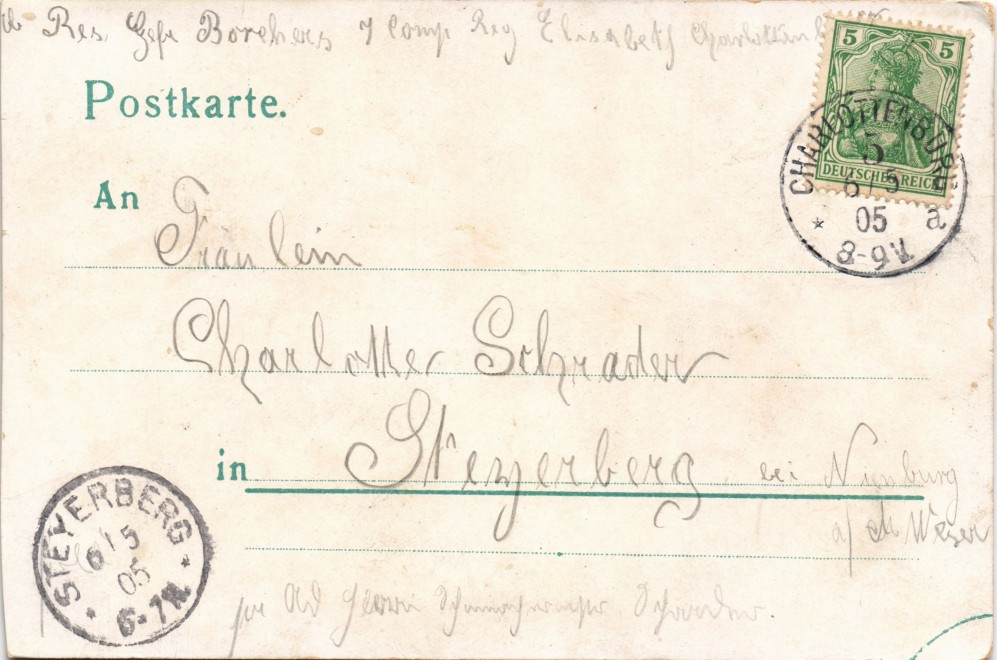 Res. Gefr Borchers 7 Comp Reg Elisabeth Charlottenb
5 5
DEUTSCHES REICH
Postkarte.
CHARLOTTENBURG
5
6/5
05 a
8-9V.
An
Fräulein
Charlotte Schrader
in Steyerberg bei Nienburg
a/ d Weser
STEYERBERG
6/5
05
6-7N.
pr Ad Herrn Schrader.